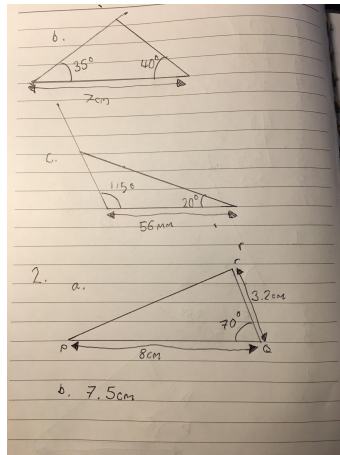 b.
35° 40°
7cm
c.
115° 20°
56mm
2. a.
r
r
3.2cm
70°
P 8cm Q
b. 7.5cm